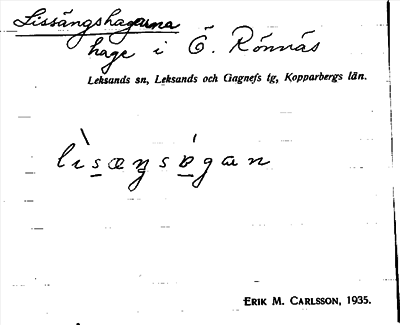 Lissängshagarna
hage i Ö. Rönnäs
Leksands sn, Leksands och Gagnefs tg, Kopparbergs län.
lìsæŋságan
ERIK M. CARLSSON, 1935.